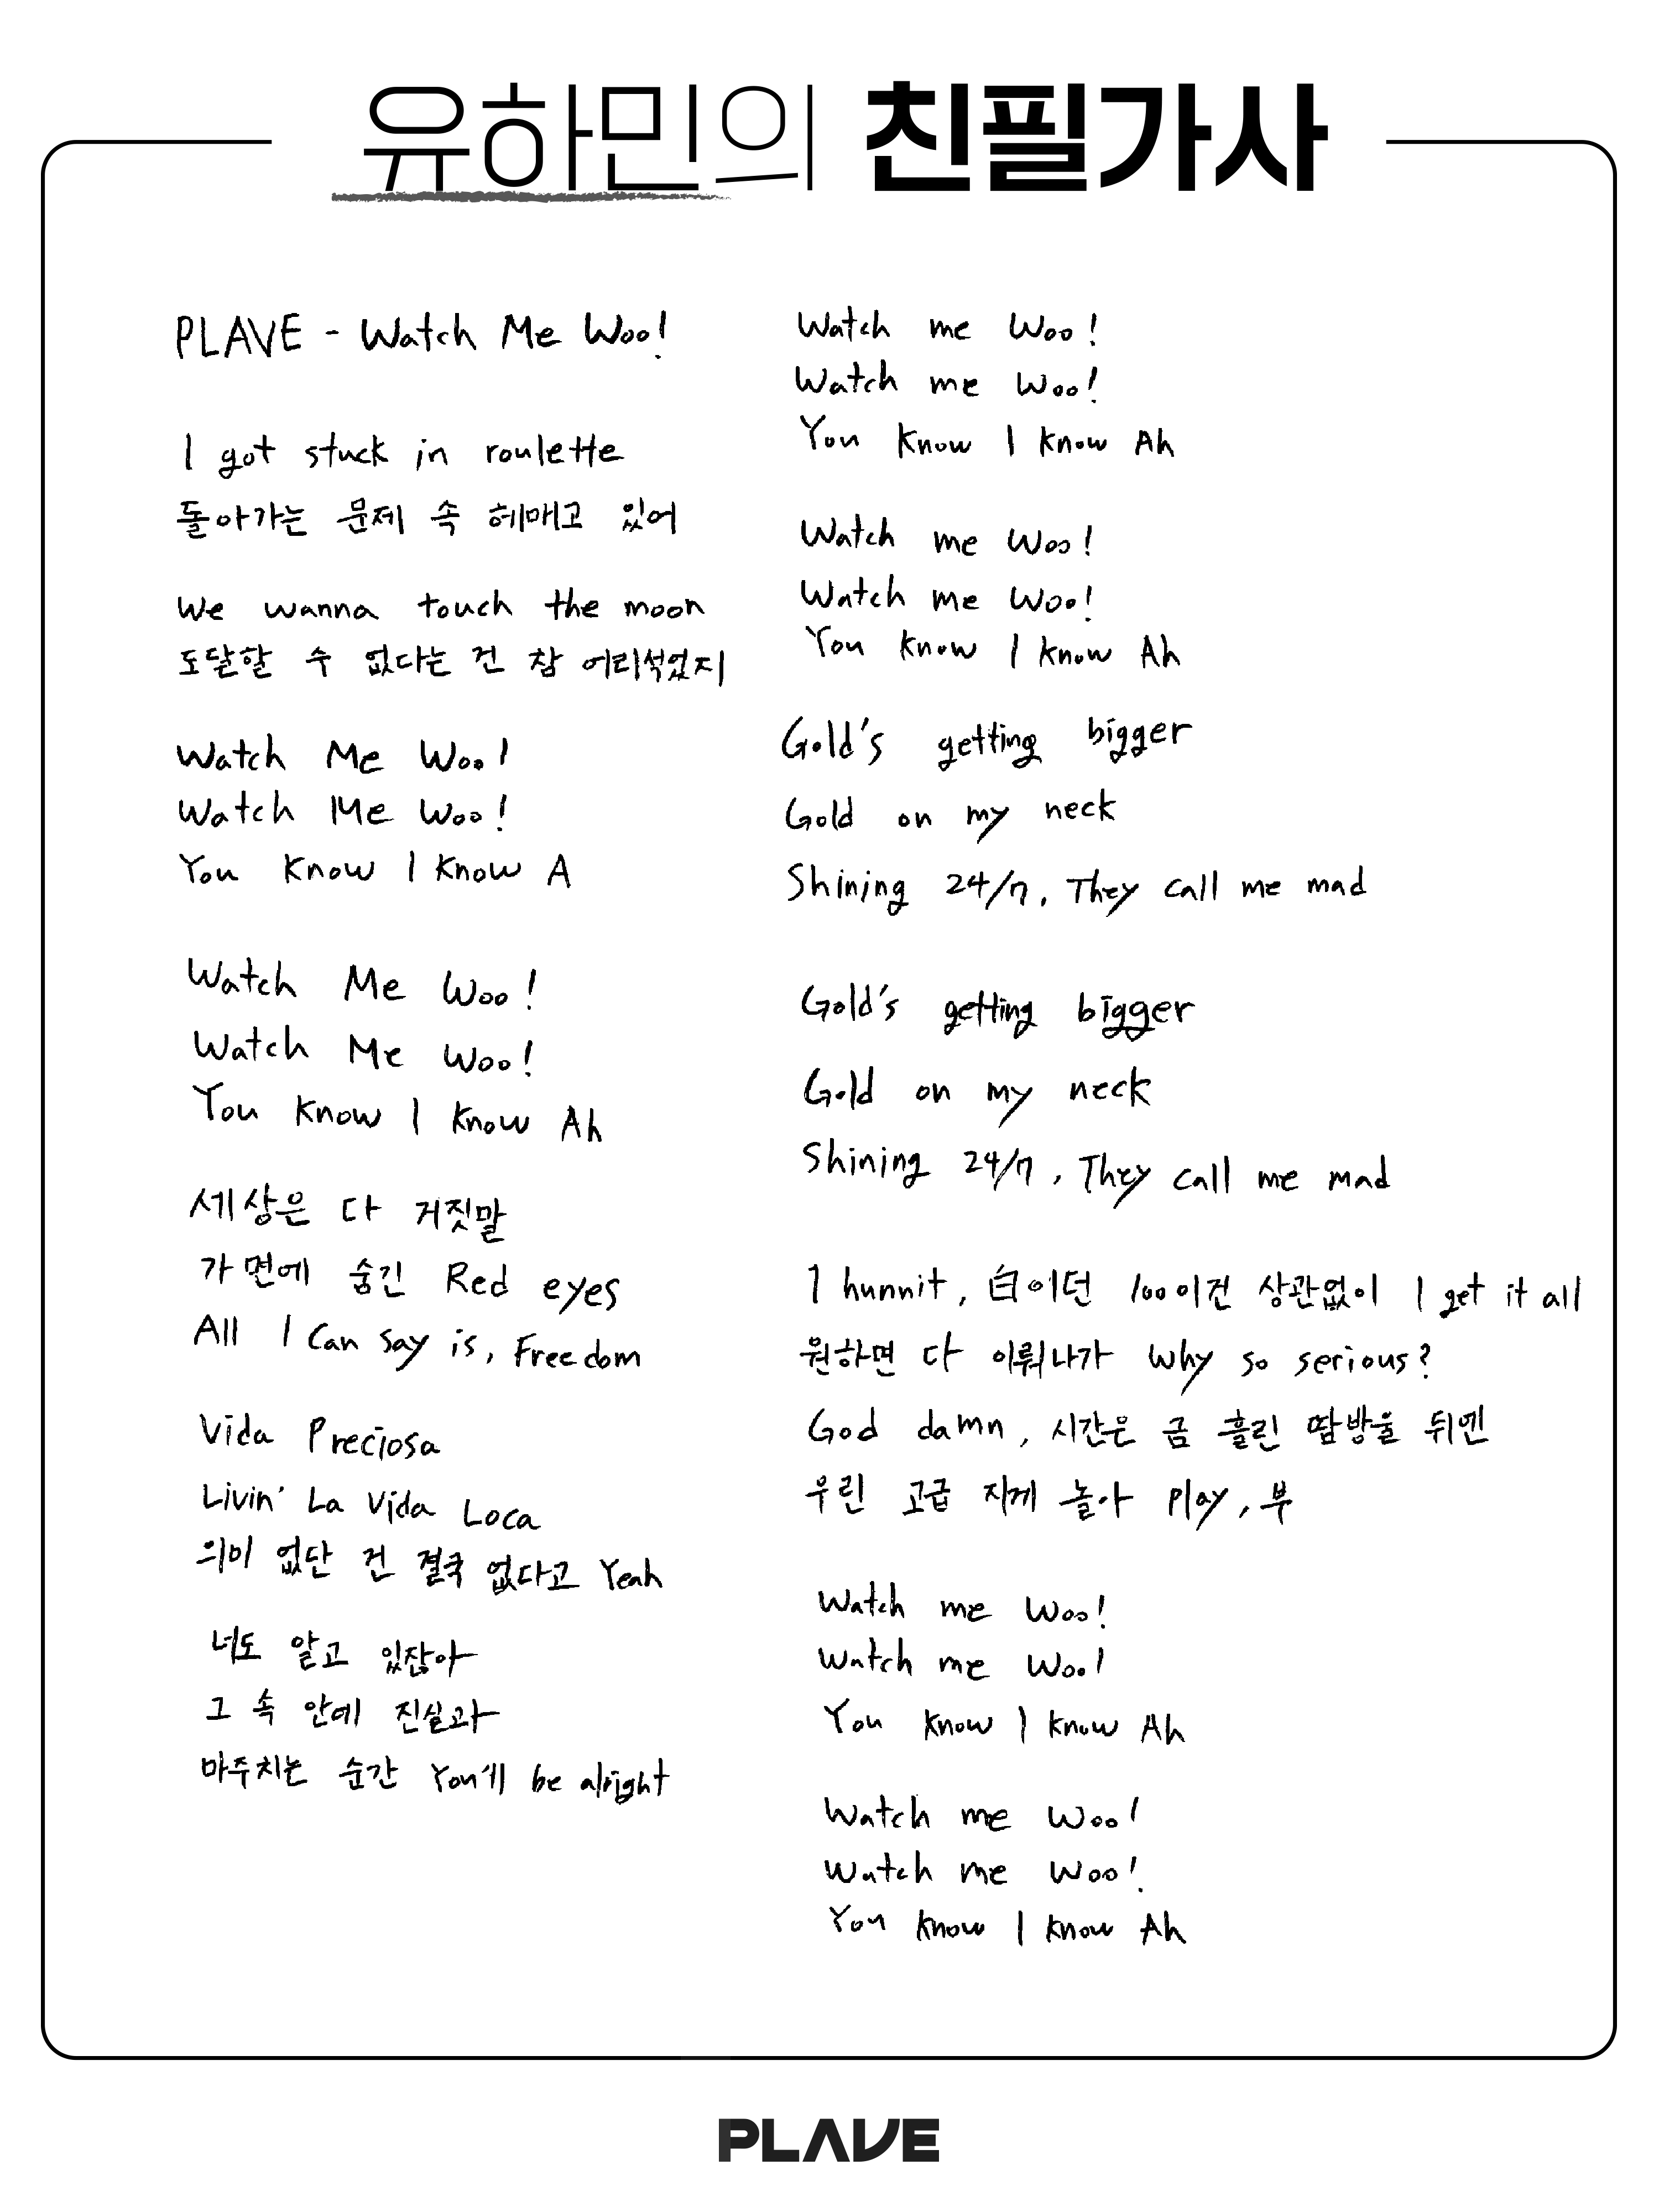 유하민의 친필가사
PLAVE - Watch Me Woo!
I got stuck in roulette
돌아가는 문제 속 헤매고 있어
We wanna touch the moon
도달할 수 없다는 건 참 어리석었지
Watch Me Woo!
Watch Me Woo!
You know I know A
Watch Me Woo!
Watch Me Woo!
You know I know Ah
세상은 다 거짓말
가면에 숨긴 Red eyes
All I can say is, Freedom
Vida Preciosa
Livin' La Vida Loca
의미 없단 건 결국 없다고 Yeah
너도 알고 있잖아
그 속 안에 진실과
마주치는 순간 You'll be alright
Watch me Woo!
Watch me Woo!
You know I know Ah
Watch me Woo!
Watch me Woo!
You know I know Ah
Gold's getting bigger
Gold on my neck
Shining 24/7, They call me mad
Gold's getting bigger
Gold on my neck
Shining 24/7, They call me mad
1 hunnit, 白이던 100이건 상관없이 I get it all
원하면 다 이뤄나가 Why so serious?
God damn, 시간은 금 흘린 땀방울 뒤엔
우린 고급 지게 놀아 Play, 부
Watch me Woo!
Watch me Woo!
You know I know Ah
Watch me Woo!
Watch me Woo!
You know I know Ah
PLAVE